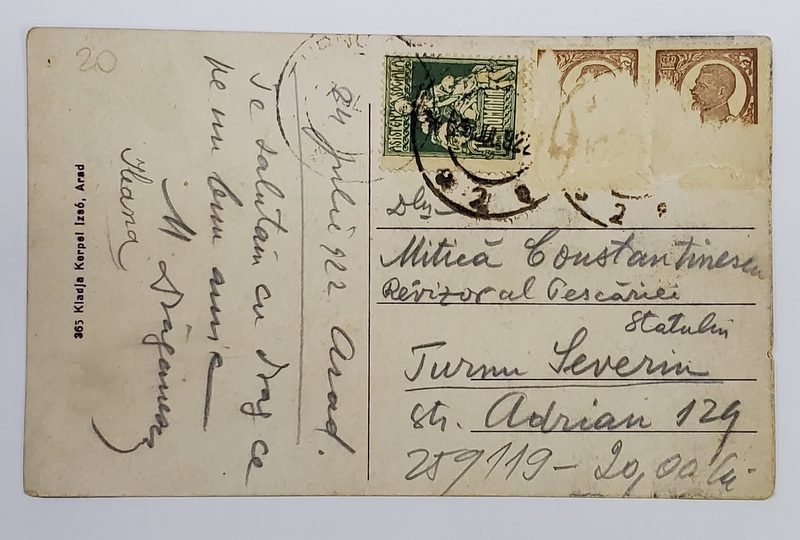 20
365 Kladja Kerpel Izsó, Arad
24 Julie 922. Arad.
Te salutăm cu drag ca
pe un bun amic
M Drăgănescu
Ileana
ASISTENȚA SOCIALA
2
2
Dlui
Mitică Constantinescu
Revizor al Pescăriei
Statului
Turnu Severin
str. Adrian 129
259119 - 20,00 lei